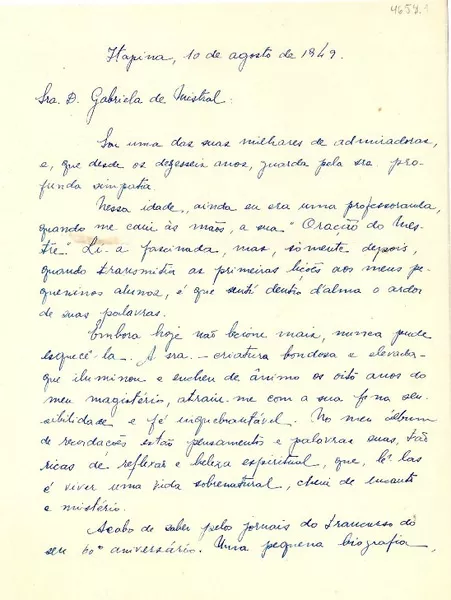 4654.1
Itapina, 10 de agosto de 1949.
Sra. D. Gabriela de Mistral.
Sou uma das suas milhares de admiradoras,
e, que desde os dezesseis anos, guarda pela sra. pro-
funda simpatia.
Nessa idade, ainda eu era uma professoranda,
quando me caiu às mãos, a sua "Oração do Mes-
tre". Li-a fascinada, mas, somente depois,
quando transmitia as primeiras lições aos meus pe-
queninos alunos, é que sentí dentro d'alma o ardor
de suas palavras.
Embora hoje não lecione mais, nunca pude
esquecê-la. A sra. - criatura bondosa e elevada -
que iluminou e encheu de ânimo os oito anos do
meu magistério, atraiu-me com a sua fina sen-
sibilidade e fé inquebrantável. No meu álbum
de recordações estão pensamentos e palavras suas, tão
ricas de reflexão e beleza espiritual, que, lê-las
é viver uma vida sobrenatural, cheia de encanto
e mistério.
Acabo de saber pelo jornais do transcurso do
seu 60º aniversário. Uma pequena biografia,